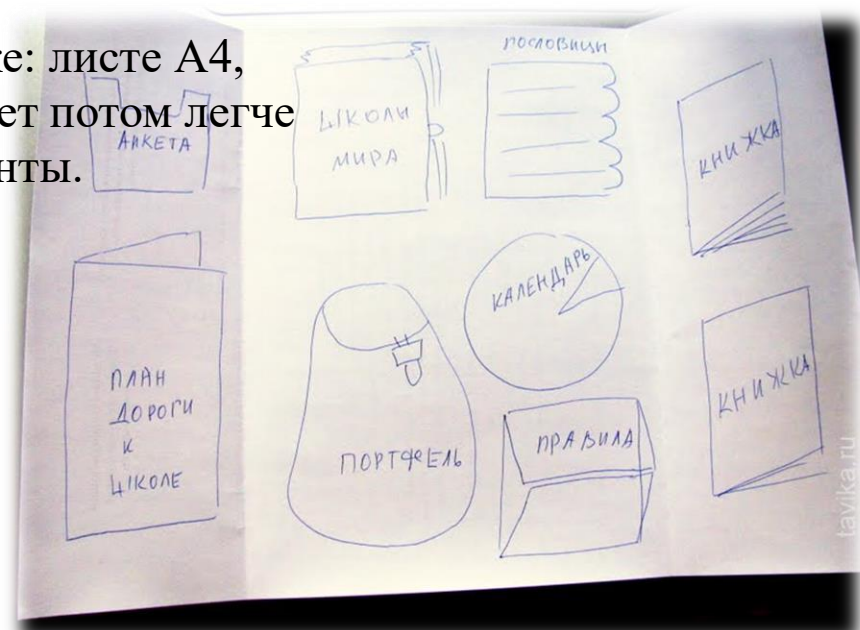 е: листе А4,
ет потом легче
нты.
АНКЕТА
ШКОЛЫ
МИРА
ПОСЛОВИЦЫ
КНИЖКА
ПЛАН
ДОРОГИ
К
ШКОЛЕ
ПОРТФЕЛЬ
КАЛЕНДАРЬ
ПРАВИЛА
КНИЖКА
tavika.ru